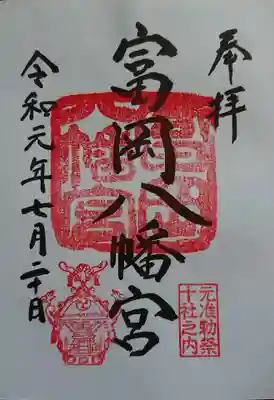 奉拝
元准勅祭
十社之内
富岡八幡宮
令和元年七月二十日